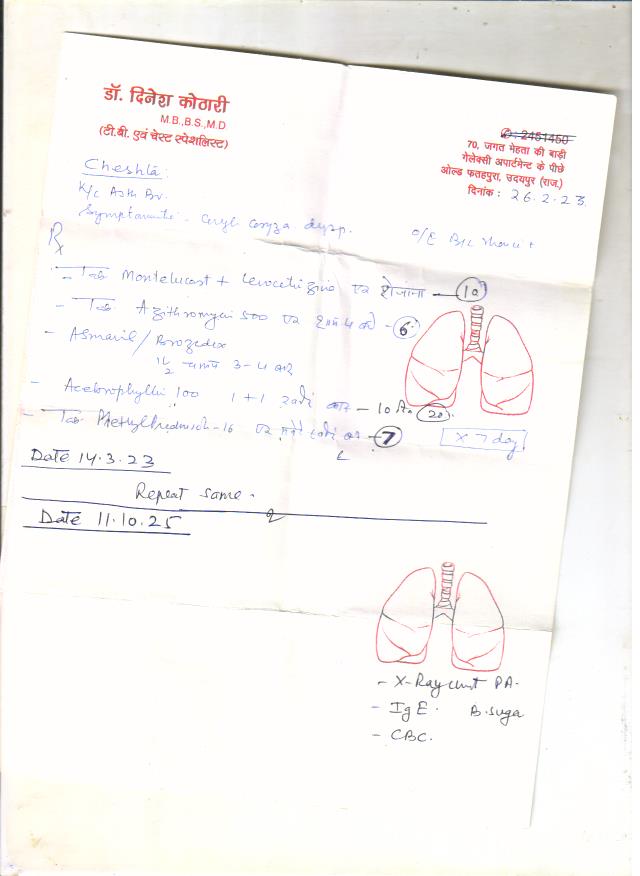 डॉ. दिनेश कोठारी
M.B.,B.S.,M.D
(टी.बी. एवं चेस्ट स्पेशलिस्ट)
✆: 2451450
70, जगत मेहता की बाड़ी
गेलेक्सी अपार्टमेन्ट के पीछे
ओल्ड फतहपुरा, उदयपुर (राज.)
दिनांक : 26.2.23
Cheshta
K/c Asth Br.
Symptomatic - coryza dysp.
O/E B/L +
Rx
- Tab Montelucast + Levocetizine एक रोजाना - 10
- Tab Azithromycin 500 एक - 6
- Asmaril / Brozedex
1/2 चम्मच 3-4 बार
- Acebrophyllin 100 1+1 - 10 दिन 20
- Tab Methylprednisol-16 एक - 7
x 7 day
Date 14.3.23
Repeat same.
Date 11.10.25
- X-Ray chest PA.
- IgE. B. Suga
- CBC.